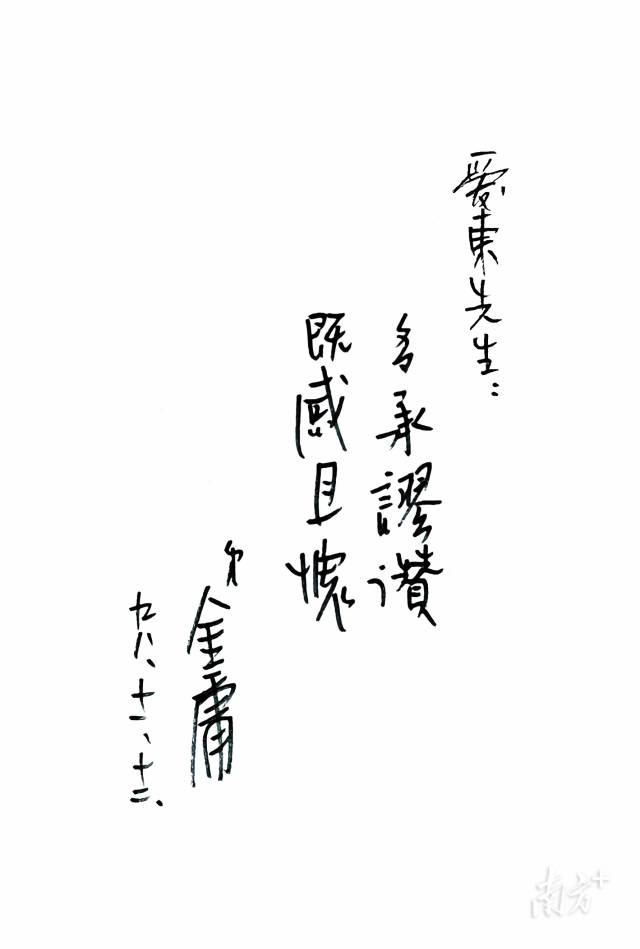 愛東先生：
多承謬讚
既感且愧
弟 金庸
九八、十一、十二、
南方+